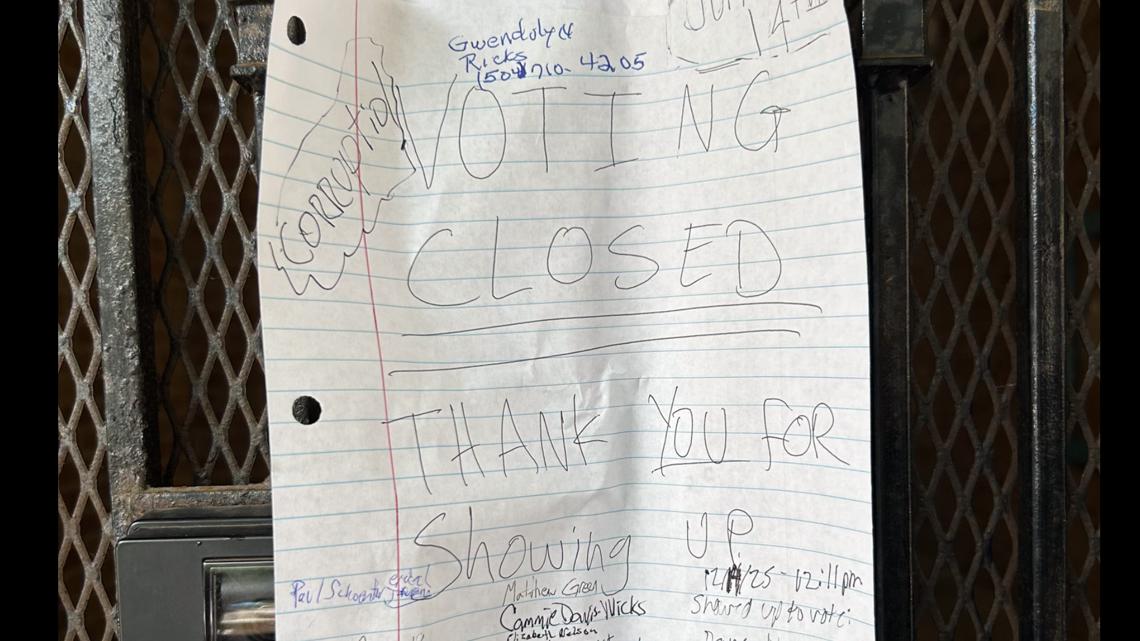 Gwendolyn
Ricks
(504) 710-4205
14TH
CORRUPTION
VOTING
CLOSED
THANK YOU FOR
Showing UP
Paul
Matthew Green
Cammie Davis Wicks
Elizabeth Nelson
12:11pm
Showed up to vote: